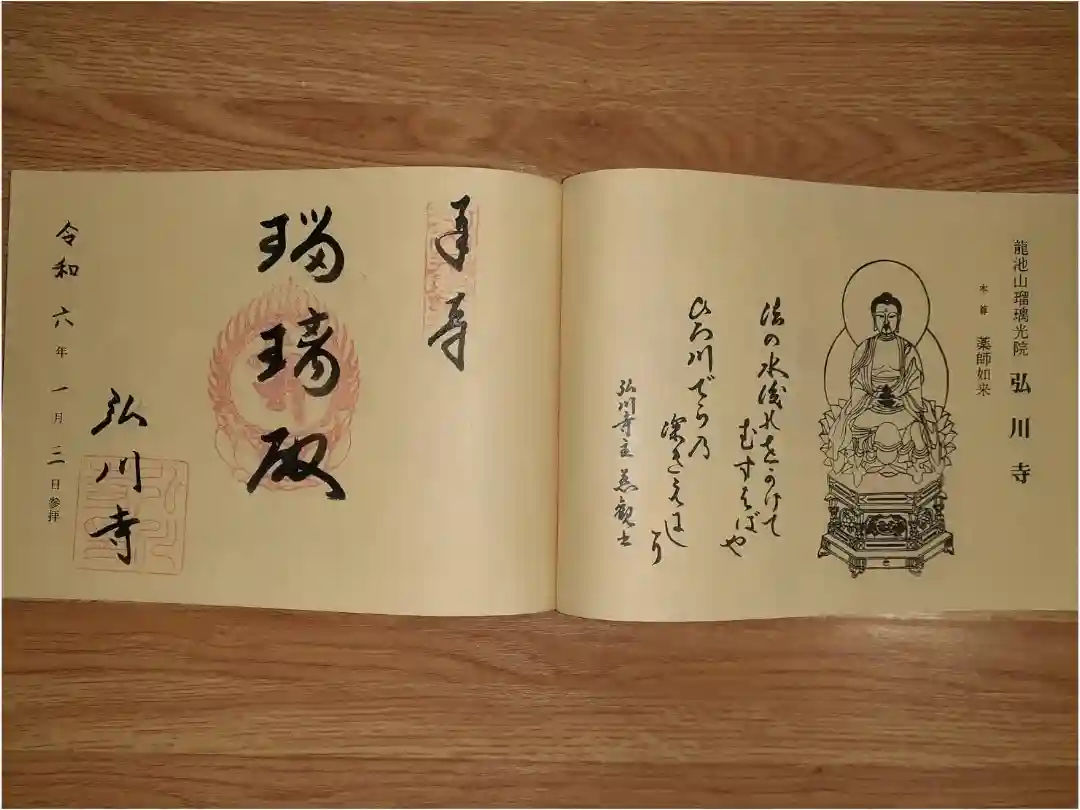 龍池山瑠璃光院 弘川寺
本尊 薬師如来
法の水浅れをかけて
むすはばや
ひろ川でらの
深きえにし
弘川寺主 慈観
奉拝
瑠璃殿
弘川寺
令和六年一月三日参拝